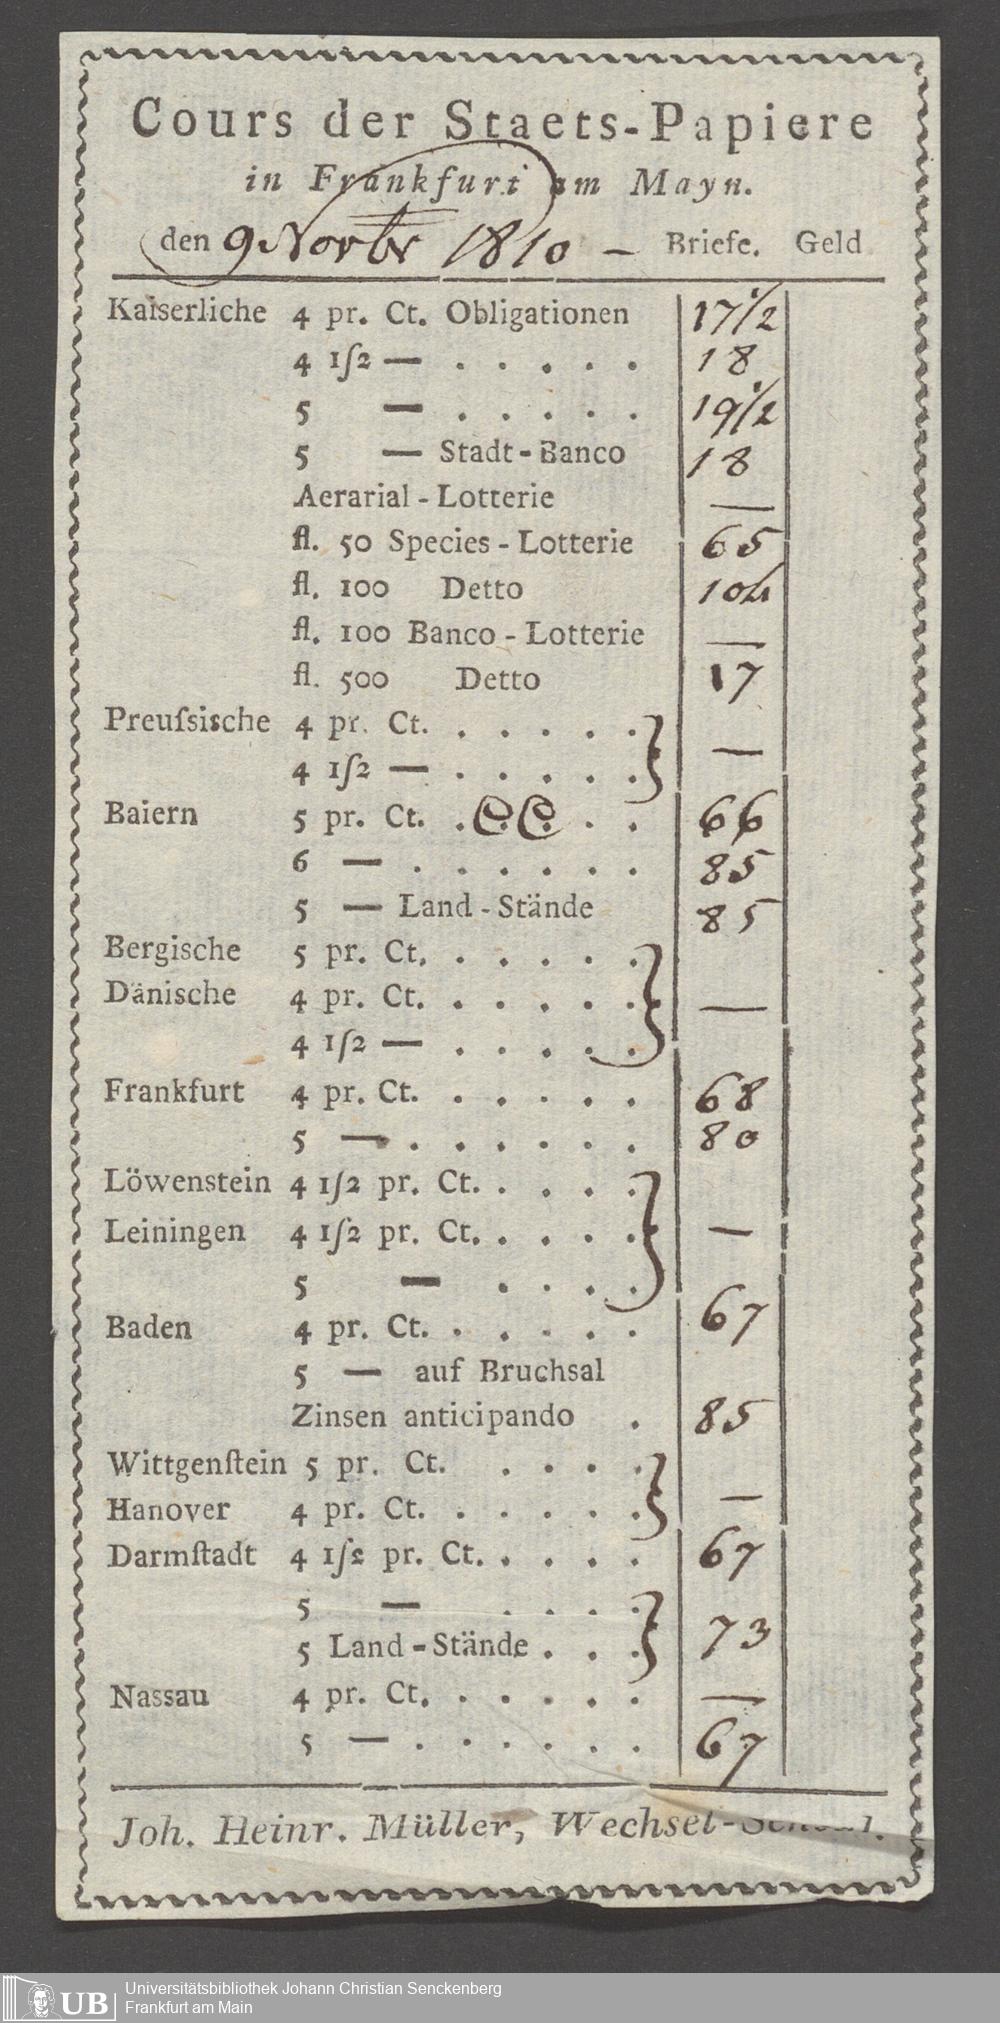 Cours der Staets-Papiere
in Frankfurt am Mayn.
den 9 Novbr 1810 — Briefe. Geld
Kaiserliche 4 pr. Ct. Obligationen 17 1/2
4 1ſ2 — . . . . . 18
5 — . . . . . 19 1/2
5 — Stadt-Banco 18
Aerarial-Lotterie —
fl. 50 Species-Lotterie 65
fl. 100 Detto 104
fl. 100 Banco-Lotterie —
fl. 500 Detto 17
Preuſsische 4 pr. Ct. . . . . .
4 1ſ2 — . . . . . —
Baiern 5 pr. Ct. . . . . . 66
6 — . . . . . . 85
5 — Land-Stände 85
Bergische 5 pr. Ct. . . . . .
Dänische 4 pr. Ct. . . . . . —
4 1ſ2 — . . . . .
Frankfurt 4 pr. Ct. . . . . . 68
5 — . . . . . . 80
Löwenstein 4 1ſ2 pr. Ct. . . . .
Leiningen 4 1ſ2 pr. Ct. . . . . —
5 — . . . .
Baden 4 pr. Ct. . . . . . 67
5 — auf Bruchsal
Zinsen anticipando . 85
Wittgenſtein 5 pr. Ct. . . . .
Hanover 4 pr. Ct. . . . . . —
Darmſtadt 4 1ſ2 pr. Ct. . . . . 67
5 — . . . .
5 Land-Stände . . . 73
Nassau 4 pr. Ct. . . . . . —
5 — . . . . . . 67
Joh. Heinr. Müller, Wechsel-
UB
Universitätsbibliothek Johann Christian Senckenberg
Frankfurt am Main